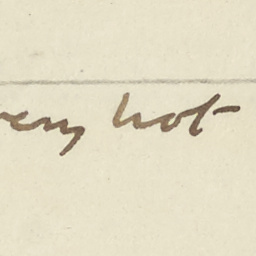 very hot